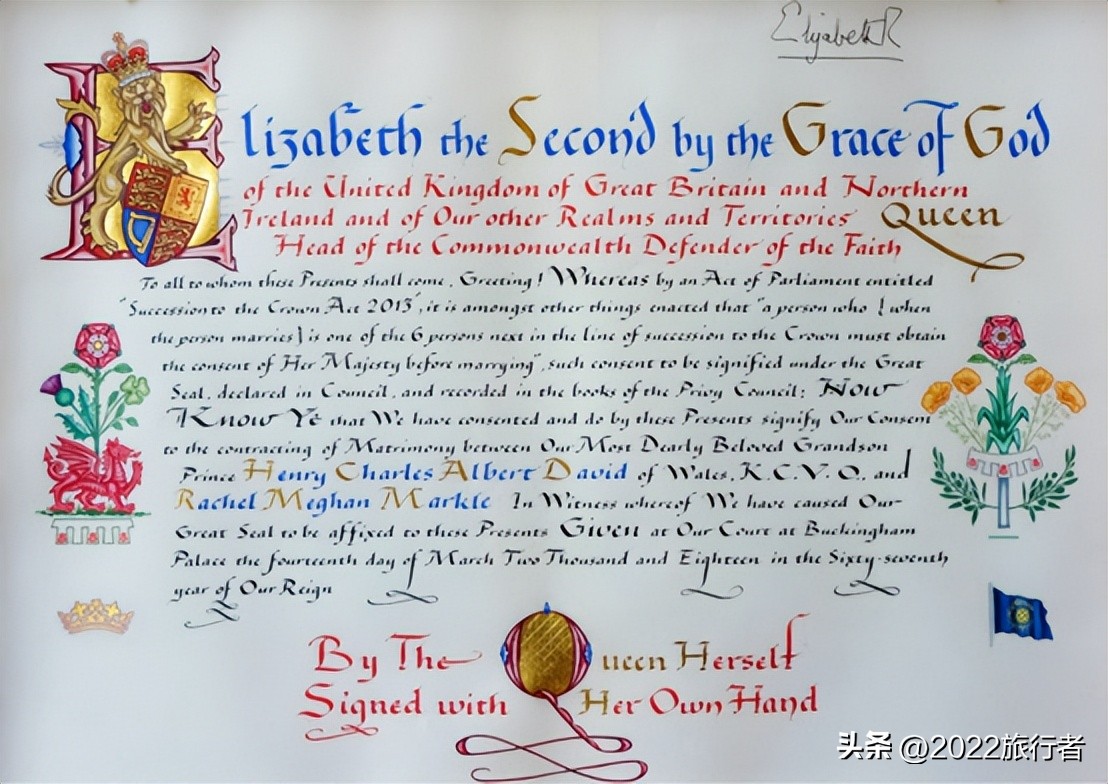 Elizabeth R
Elizabeth the Second by the Grace of God
of the United Kingdom of Great Britain and Northern
Ireland and of Our other Realms and Territories Queen
Head of the Commonwealth Defender of the Faith
To all to whom these Presents shall come, Greeting! Whereas by an Act of Parliament entitled
"Succession to the Crown Act 2013", it is amongst other things enacted that "a person who {when
the person marries} is one of the 6 persons next in the line of succession to the Crown must obtain
the consent of Her Majesty before marrying", such consent to be signified under the Great
Seal, declared in Council, and recorded in the books of the Privy Council; Now
Know Ye that We have consented and do by these Presents signify Our Consent
to the contracting of Matrimony between Our Most Dearly Beloved Grandson
Prince Henry Charles Albert David of Wales, K.C.V.O., and
Rachel Meghan Markle In Witness whereof We have caused Our
Great Seal to be affixed to these Presents Given at Our Court at Buckingham
Palace the fourteenth day of March Two Thousand and Eighteen in the Sixty-seventh
year of Our Reign
By The Queen Herself
Signed with Her Own Hand
头条 @2022旅行者